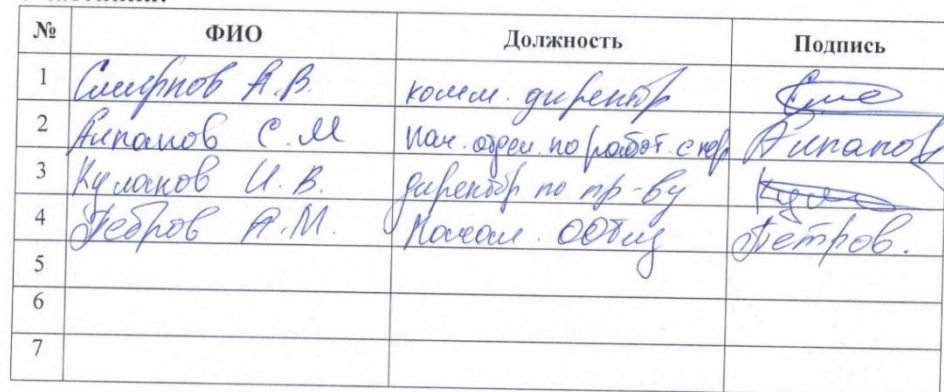 № ФИО Должность Подпись
1 Смирнов А.В. комм. директор
2 Аипанов С.М нач. отдел. по работ. с пер Аипанов
3 Кулаков И.В. директор по пр-ву
4 Петров А.М. Начал. ООТиЗ Петров.
5
6
7